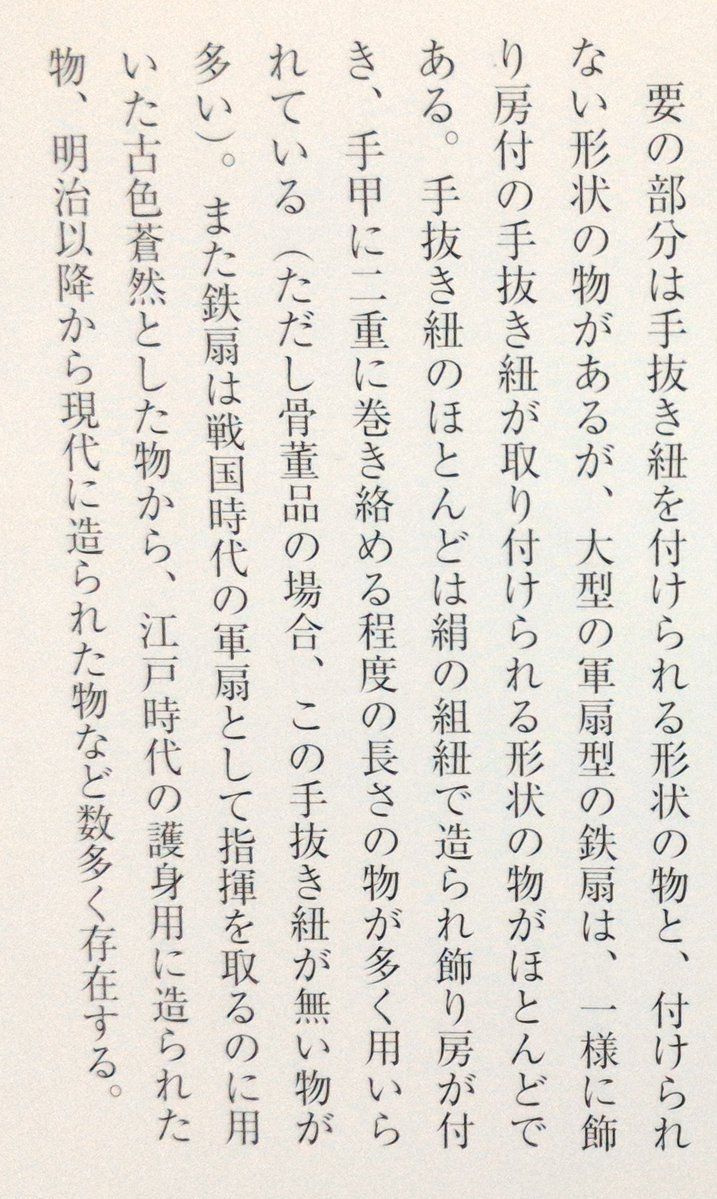 要の部分は手抜き紐を付けられる形状の物と、付けられ
ない形状の物があるが、大型の軍扇型の鉄扇は、一様に飾
り房付の手抜き紐が取り付けられる形状の物がほとんどで
ある。手抜き紐のほとんどは絹の組紐で造られ飾り房が付
き、手甲に二重に巻き絡める程度の長さの物が多く用いら
れている（ただし骨董品の場合、この手抜き紐が無い物が
多い）。また鉄扇は戦国時代の軍扇として指揮を取るのに用
いた古色蒼然とした物から、江戸時代の護身用に造られた
物、明治以降から現代に造られた物など数多く存在する。